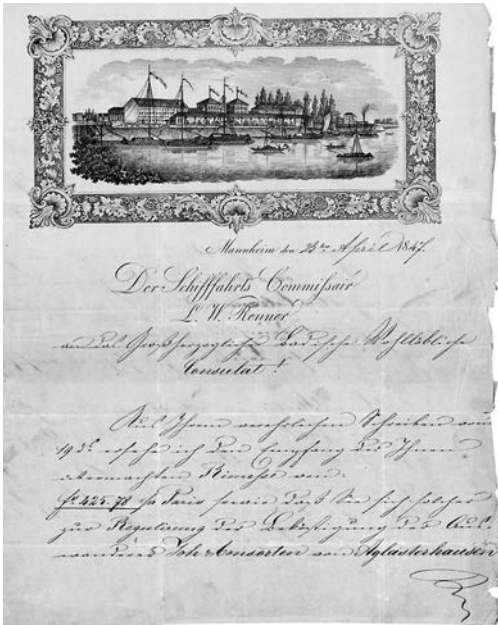 Mannheim den 23ten April 1847.
Der Schifffahrts Commissair
L. W. Renner
an das Großherzogliche Badische Wohllöbliche
Consulat!
Aus Ihrem verehrlichen Schreiben vom
19 ds. ersehe ich den Empfang des Ihnen
übermachten Rimesse von
fr. 425.78 pr Paris sowie daß Sie sich solcher
zur Regulirung der Beköstigung der Aus-
wanderer Joh & Consorten von Aglasterhausen